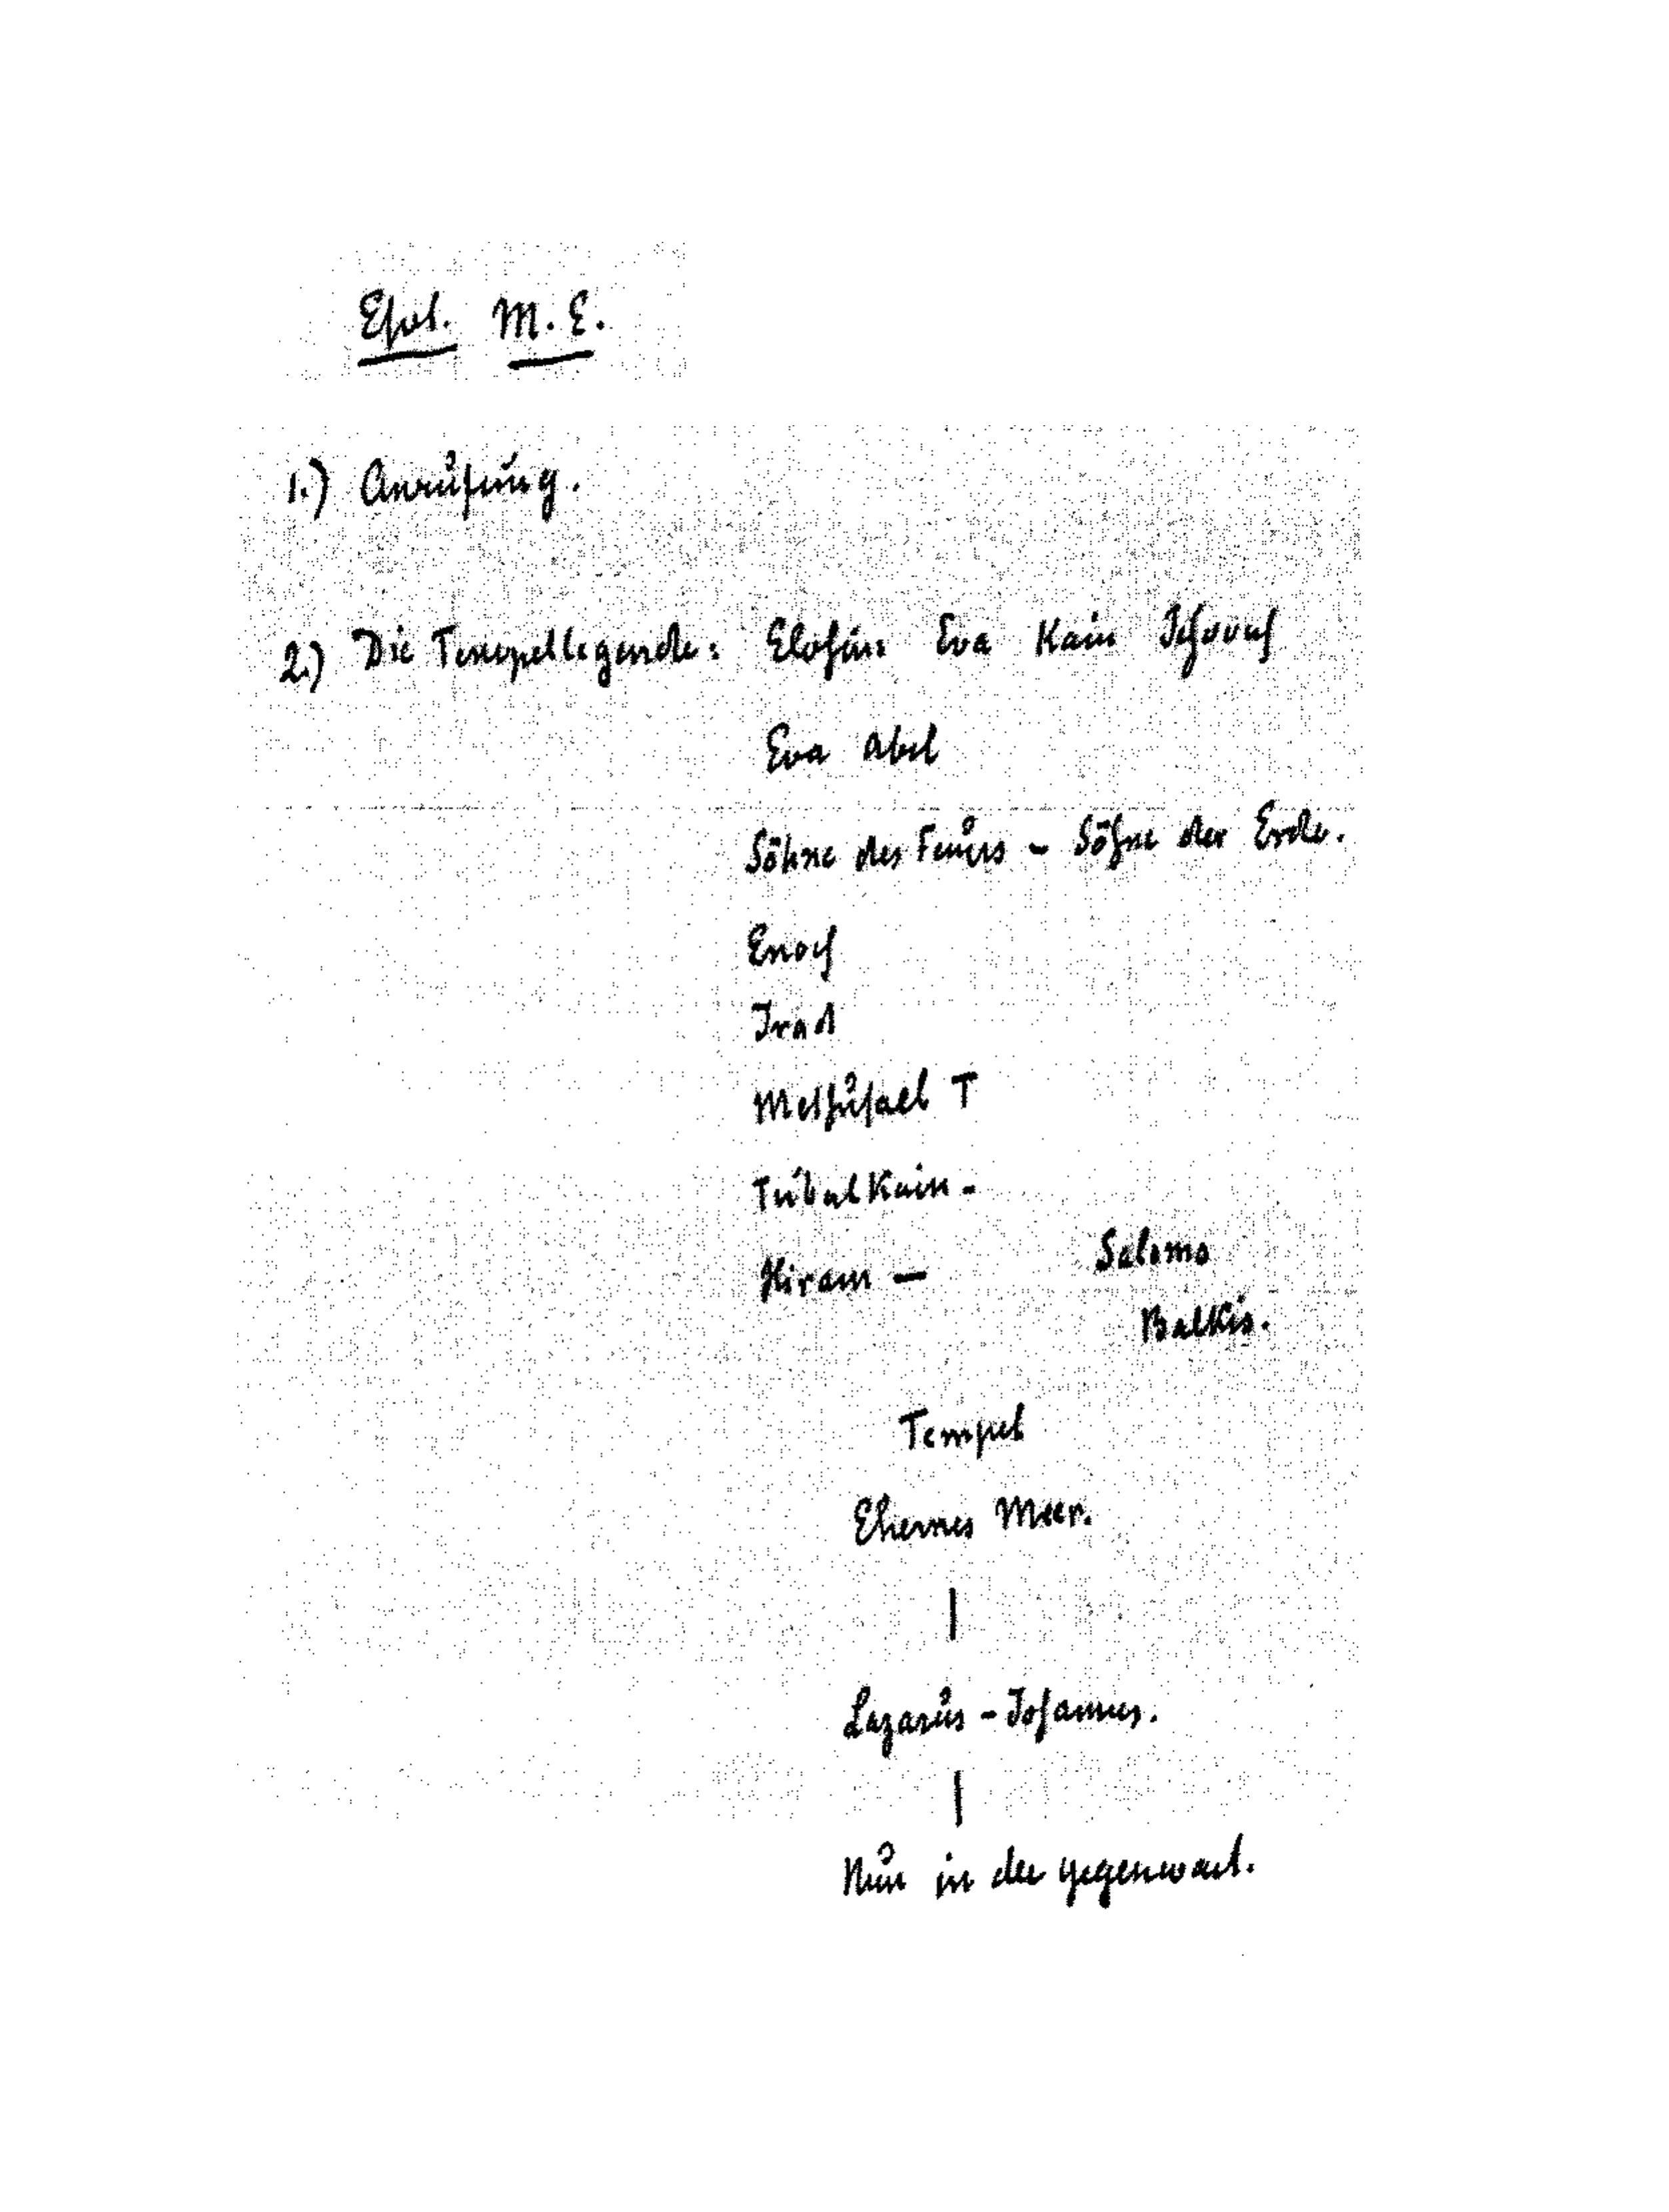 M. E.
1.) Anrufung.
2.) Die Tempellegende: Elohim Eva Kain Jehovah
Eva Abel
Söhne des Feuers - Söhne der Erde.
Enoch
Irad
Methusael T
Tubalkain -
Hiram — Salomo
Balkis.
Tempel
Ehernes Meer.
Lazarus - Johannes.
Nun in der Gegenwart.